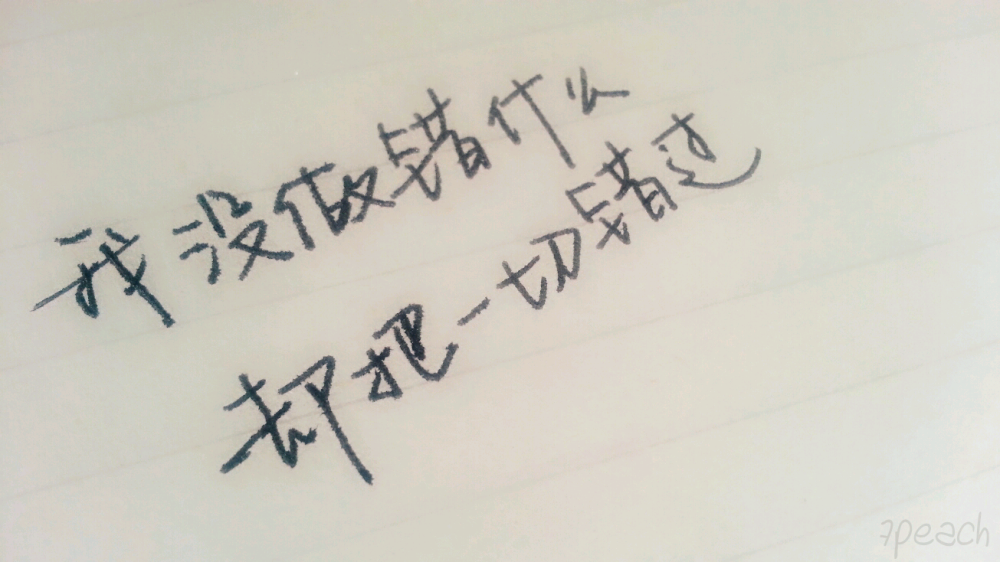 我没做错什么
却把一切错过
7peach